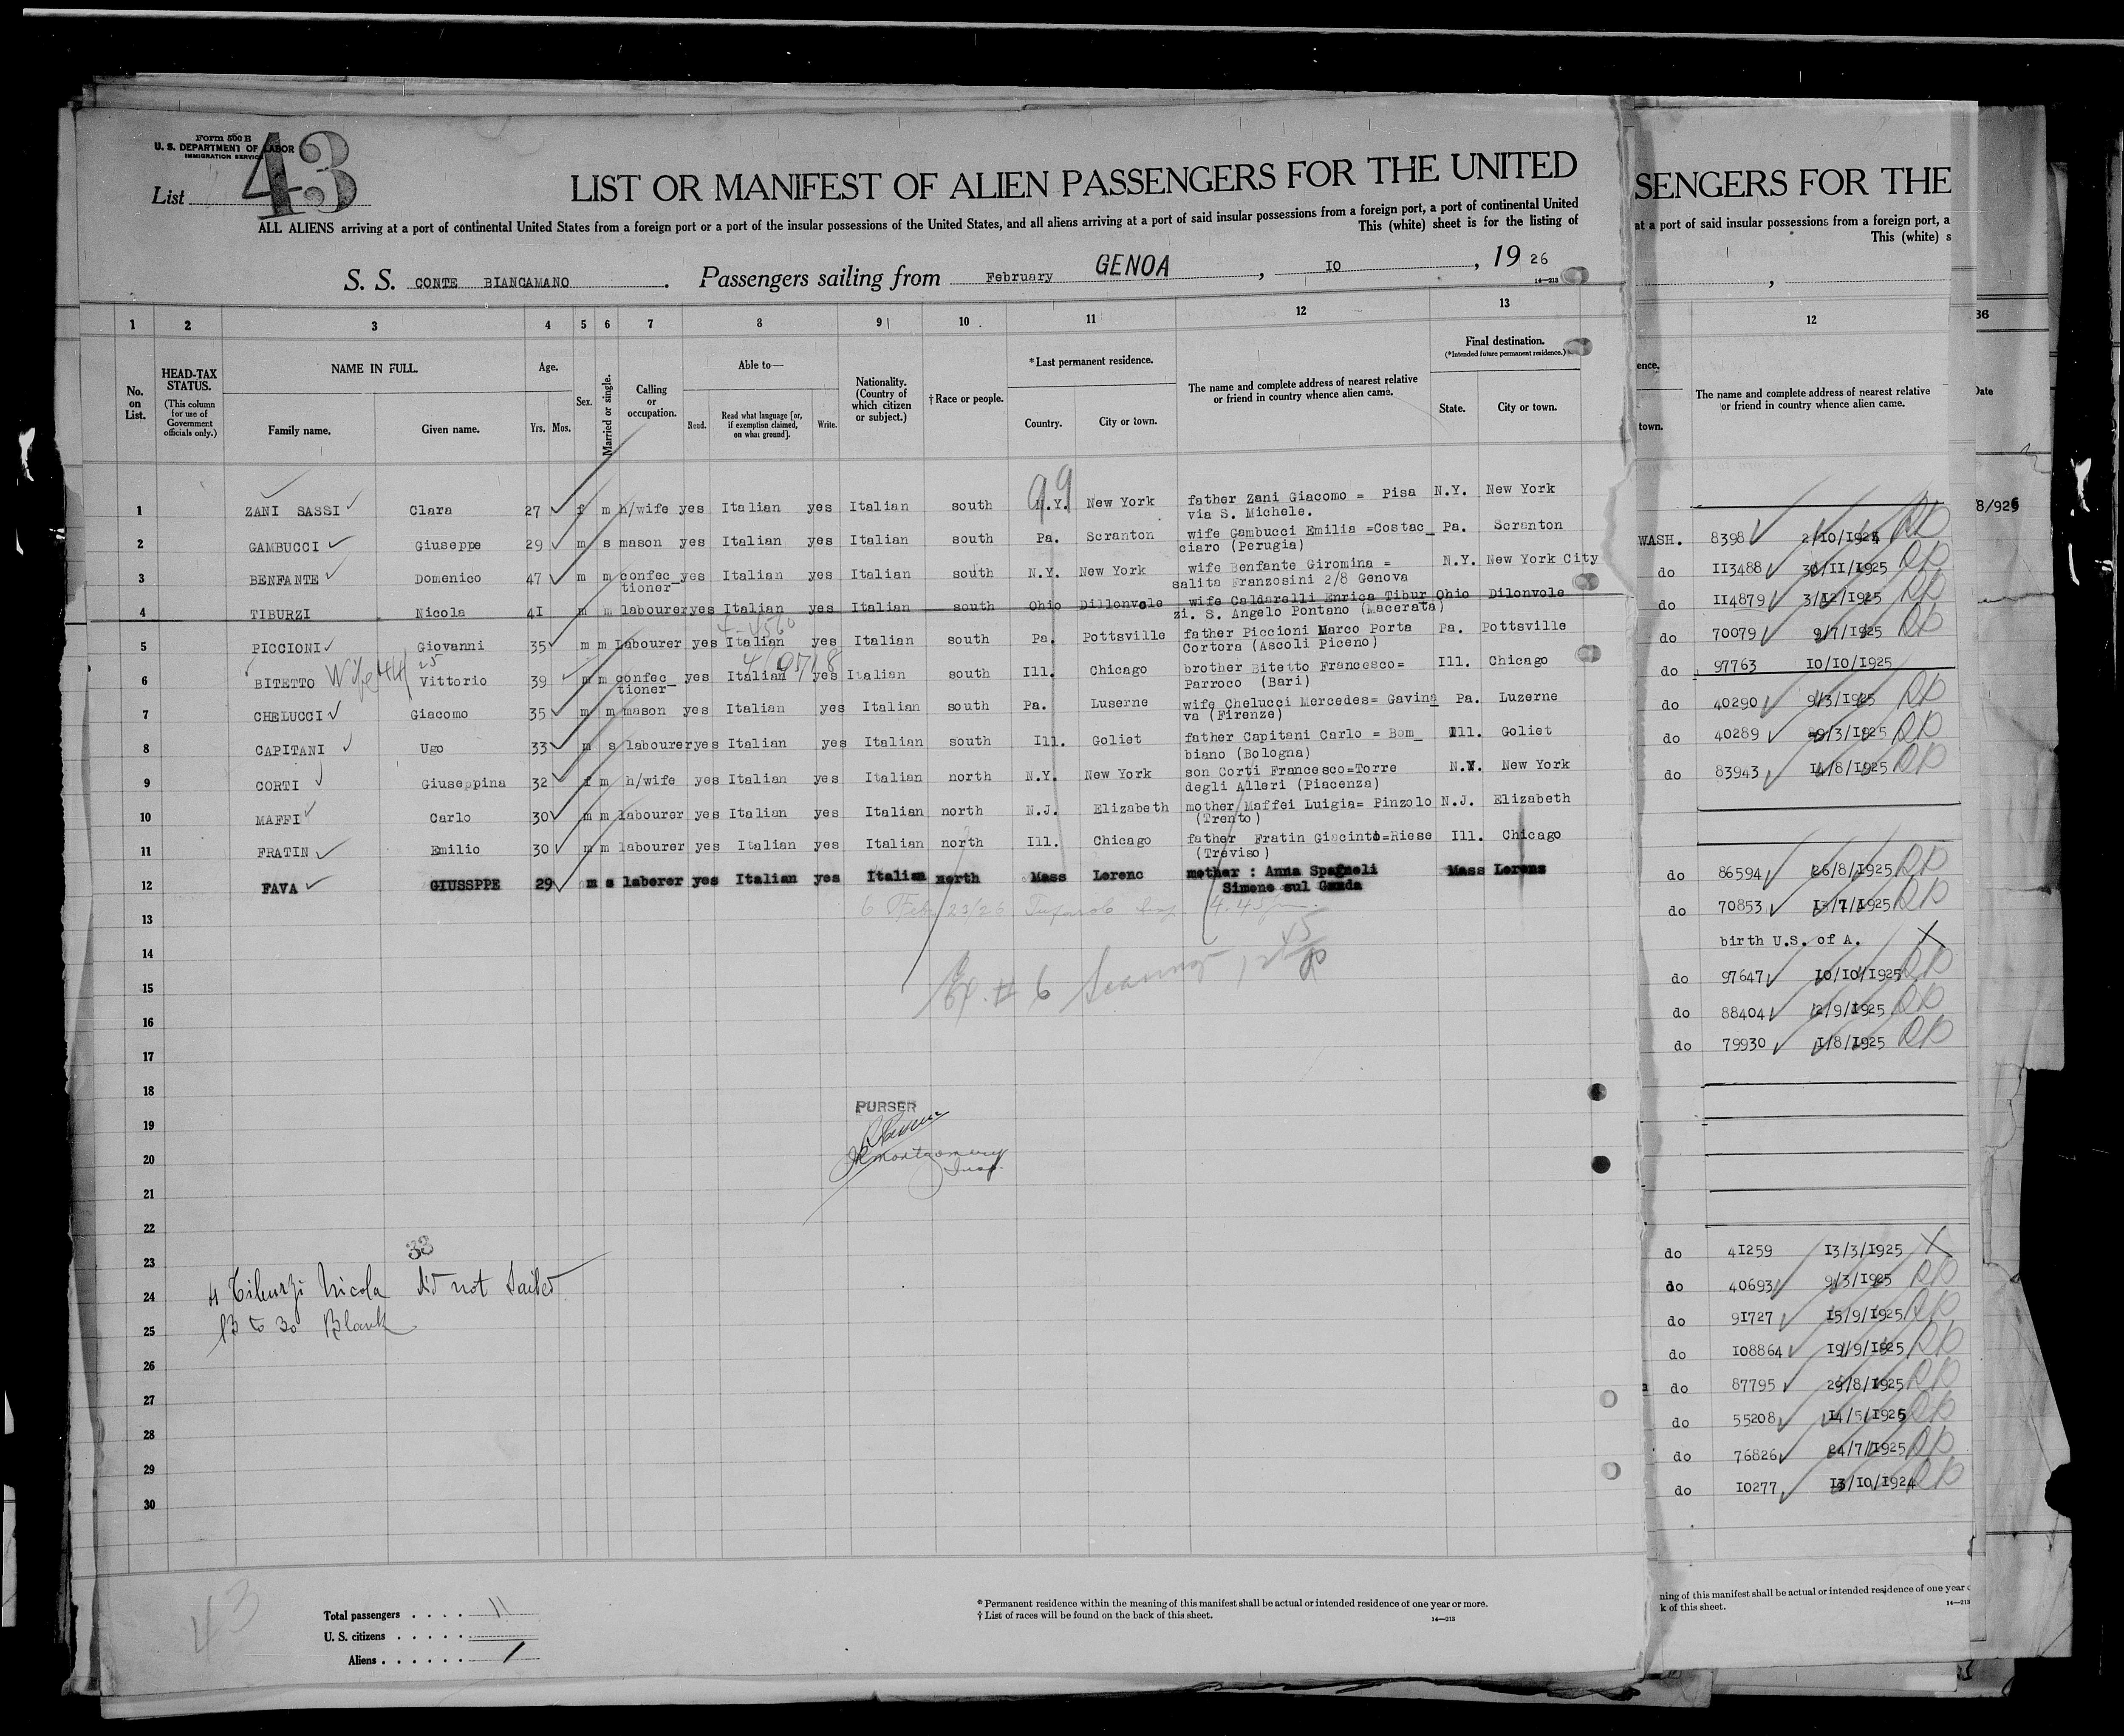 Form 500 B
U. S. DEPARTMENT OF LABOR
IMMIGRATION SERVICE
List 43
LIST OR MANIFEST OF ALIEN PASSENGERS FOR THE UNITED
ALL ALIENS arriving at a port of continental United States from a foreign port or a port of the insular possessions of the United States, and all aliens arriving at a port of said insular possessions from a foreign port, a port of continental United
This (white) sheet is for the listing of
S. S. CONTE BIANCAMANO . Passengers sailing from February GENOA , IO , 19 26
14—213
1 2 3 4 5 6 7 8 9 10 11 12 13
No. on List.
HEAD-TAX STATUS.
(This column for use of Government officials only.)
NAME IN FULL.
Family name. Given name.
Age.
Yrs. Mos.
Sex.
Married or single.
Calling or occupation.
Able to—
Read. Read what language [or, if exemption claimed, on what ground]. Write.
Nationality. (Country of which citizen or subject.)
†Race or people.
*Last permanent residence.
Country. City or town.
The name and complete address of nearest relative or friend in country whence alien came.
Final destination.
(*Intended future permanent residence.)
State. City or town.
99
1 ZANI SASSI Clara 27 f m h/wife yes Italian yes Italian south N.Y. New York father Zani Giacomo = Pisa N.Y. New York
via S. Michele.
2 GAMBUCCI Giuseppe 29 m s mason yes Italian yes Italian south Pa. Scranton wife Gambucci Emilia =Costac_ Pa. Scranton
ciaro (Perugia)
3 BENFANTE Domenico 47 m m confec_ yes Italian yes Italian south N.Y. New York wife Benfante Giromina = N.Y. New York City
tioner salita Franzosini 2/8 Genova
4 TIBURZI Nicola 4I m m labourer yes Italian yes Italian south Ohio Dillonvole wife Caldarelli Enrica Tibur Ohio Dilonvole
zi. S. Angelo Pontano (Macerata)
5 PICCIONI Giovanni 35 m m Labourer yes Italian yes Italian south Pa. Pottsville father Piccioni Marco Porta Pa. Pottsville
Cortora (Ascoli Piceno)
6 BITETTO Vittorio 39 m m confec_ yes Italian yes Italian south Ill. Chicago brother Bitetto Francesco= Ill. Chicago
tioner Parroco (Bari)
7 CHELUCCI Giacomo 35 m m mason yes Italian yes Italian south Pa. Luserne wife Chelucci Mercedes= Gavina Pa. Luzerne
va (Firenze)
8 CAPITANI Ugo 33 m s labourer yes Italian yes Italian south Ill. Goliet father Capitani Carlo = Bom_ Ill. Goliet
biano (Bologna)
9 CORTI Giuseppina 32 f m h/wife yes Italian yes Italian north N.Y. New York son Corti Francesco=Torre N.Y. New York
degli Alleri (Piacenza)
10 MAFFI Carlo 30 m m labourer yes Italian yes Italian north N.J. Elizabeth mother Maffei Luigia= Pinzolo N.J. Elizabeth
(Trento)
11 FRATIN Emilio 30 m m labourer yes Italian yes Italian north Ill. Chicago father Fratin Giacinto=Riese Ill. Chicago
(Treviso)
12 FAVA GIUSSPPE 29 m s laborer yes Italian yes Italian north Mass Lorenc mother : Anna Spagneli Mass Lorens
Simone sul Garda
13
14
15
16
17
18
PURSER
19
20
Montgomery
Insp.
21
22
23
33
24 4 Tiburzi Nicola did not Sailed
25 13 to 30 Blank
26
27
28
29
30
43
Total passengers . . . . 11
U. S. citizens . . . . .
Aliens . . . . . .
* Permanent residence within the meaning of this manifest shall be actual or intended residence of one year or more.
† List of races will be found on the back of this sheet.
14—213
SENGERS FOR THE
at a port of said insular possessions from a foreign port, a
This (white) s
12
ence.
town.
The name and complete address of nearest relative
or friend in country whence alien came.
WASH. 8398 2/10/1924
do II3488 30/II/I925
do II4879 3/I2/I925
do 70079 9/7/I925
do 97763 IO/IO/I925
do 40290 9/3/I925
do 40289 9/3/I925
do 83943 I4/8/I925
do 86594 26/8/I925
do 70853 I3/7/I925
birth U.S. of A.
do 97647 IO/IO/I925
do 88404 2/9/I925
do 79930 I/8/I925
do 4I259 I3/3/I925
do 40693 9/3/I925
do 9I727 I5/9/I925
do I08864 I9/9/I925
do 87795 29/8/I925
do 55208 I4/5/I925
do 76826 24/7/I925
do I0277 I3/IO/I924
ning of this manifest shall be actual or intended residence of one year o
k of this sheet.
14—213
36
Date
8/926